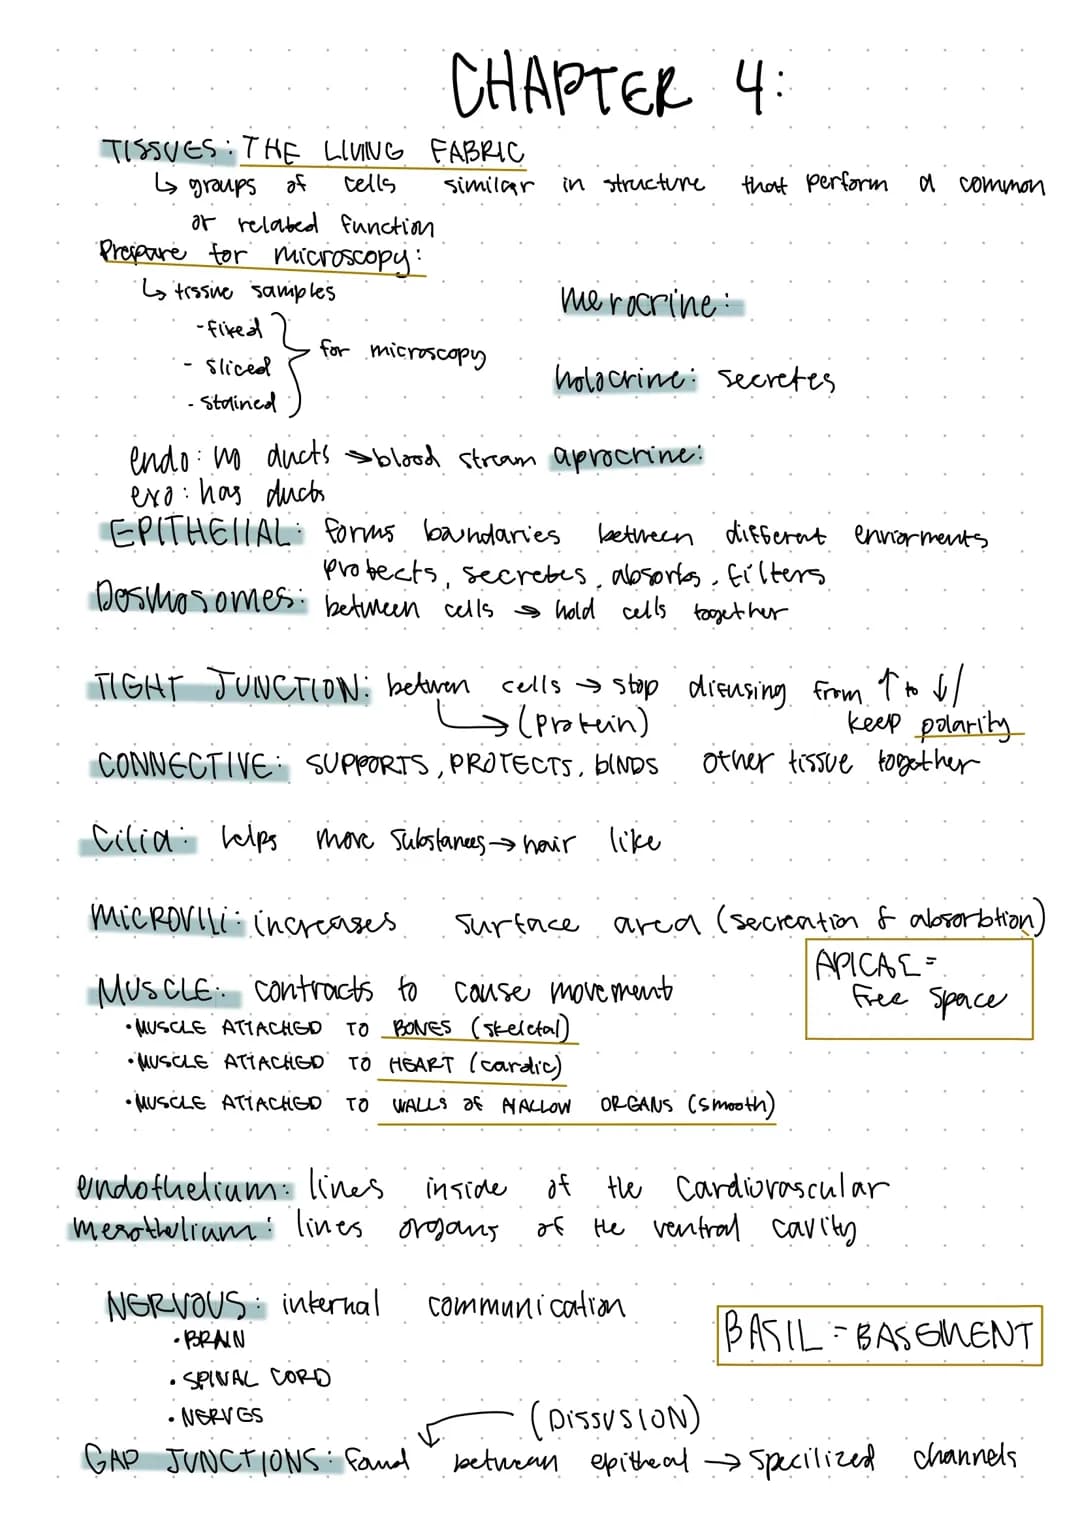 CHAPTER 4:
TISSUES: THE LIVING FABRIC
↳ groups of cells similar in structure that perform a common
or related function
Prepare for microscopy:
↳ tissue samples
- fixed
- sliced
- stained
for microscopy
merocrine:
holocrine: secretes
endo: no ducts → blood stream
aprocrine:
exo: has ducts
EPITHELIAL: forms boundaries between different enviorments
protects, secretes, absorbs, filters
Desmosomes: between cells → hold cells together
TIGHT JUNCTION: between cells → stop difusing from ↑ to ↓/
↳ (protein)
keep polarity
CONNECTIVE: SUPPORTS, PROTECTS, bINDS other tissue together
Cilia: helps move substances → hair like
MICROVILLI: increases surface area (secreation & absorbtion)
APICAL =
Free space
MUSCLE: contracts to cause movement
• MUSCLE ATTACHED TO BONES (skeletal)
• MUSCLE ATTACHED TO HEART (cardic)
• MUSCLE ATTACHED TO WALLS OF HALLOW ORGANS (smooth)
endothelium: lines inside of the Cardiovascular
mesothelium: lines organs of the ventral cavity
NERVOUS: internal communication
• BRAIN
• SPINAL CORD
• NERVES
BASIL = BASEMENT
(DISSUSION)
GAP JUNCTIONS: Found between epitheal → specilized channels